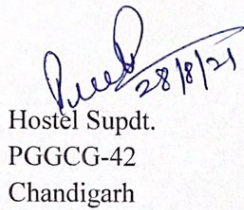 28/8/21
Hostel Supdt.
PGGCG-42
Chandigarh